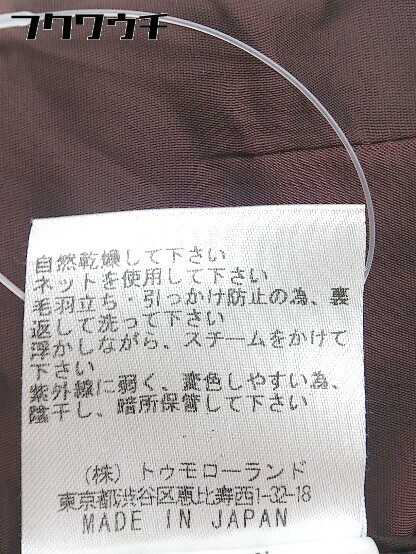 フクワウチ
自然乾燥して下さい
ネットを使用して下さい
毛羽立ち・引っかけ防止の為、裏
返して洗って下さい
浮かしながら、スチームをかけて
下さい
紫外線に弱く、変色しやすい為、
陰干し、暗所保管して下さい
(株) トゥモローランド
東京都渋谷区恵比寿西1-32-18
MADE IN JAPAN